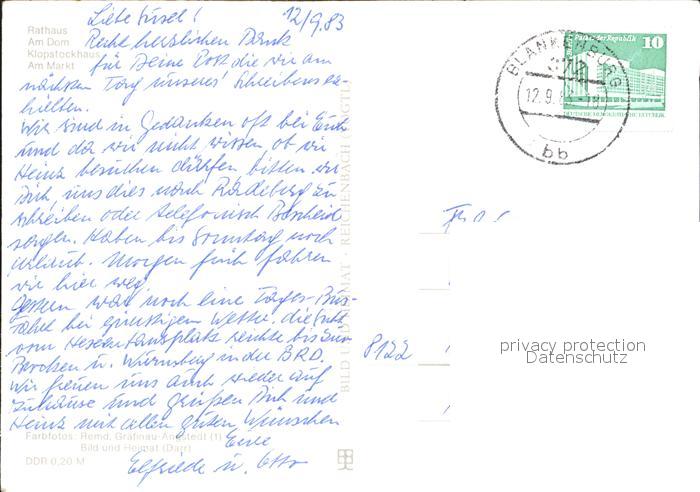 Rathaus
Am Dom
Klopstockhaus
Am Markt
12/9.83
Liebe Ursel!
Recht herzlichen Dank
für Deine Post die wir am
nächsten Tag unseres Schreibens er-
hielten.
Wir sind in Gedanken oft bei Euch
und da wir nicht wissen, ob wir
Heinz besuchen dürfen, bitten wir
Dich, uns dies nach Radeberg zu
schreiben oder telefonisch Bescheid
sagen. Haben bis Sonntag noch
Urlaub. Morgen früh fahren
wir hier weg.
Gestern war noch eine Tages-Bus-
fahrt bei günstigem Wetter. die Sicht
vom Hexentanzplatz reichte bis zum
Brocken u. in der BRD.
Wir freuen uns auch wieder auf
Zuhause und grüßen Dich und
Heinz mit allen guten Wünschen
Eure
Elfriede u. Otto
Farbfotos: Remd, Gräfinau-Angstedt (1)
Bild und Heimat (Darr)
DDR 0,20 M
BILD UND HEIMAT · REICHENBACH (VOGTL)
BLANKENBURG
12.9.83-18
bb
Palast der Republik
10
DEUTSCHE DEMOKRATISCHE REPUBLIK
P122
privacy protection
Datenschutz